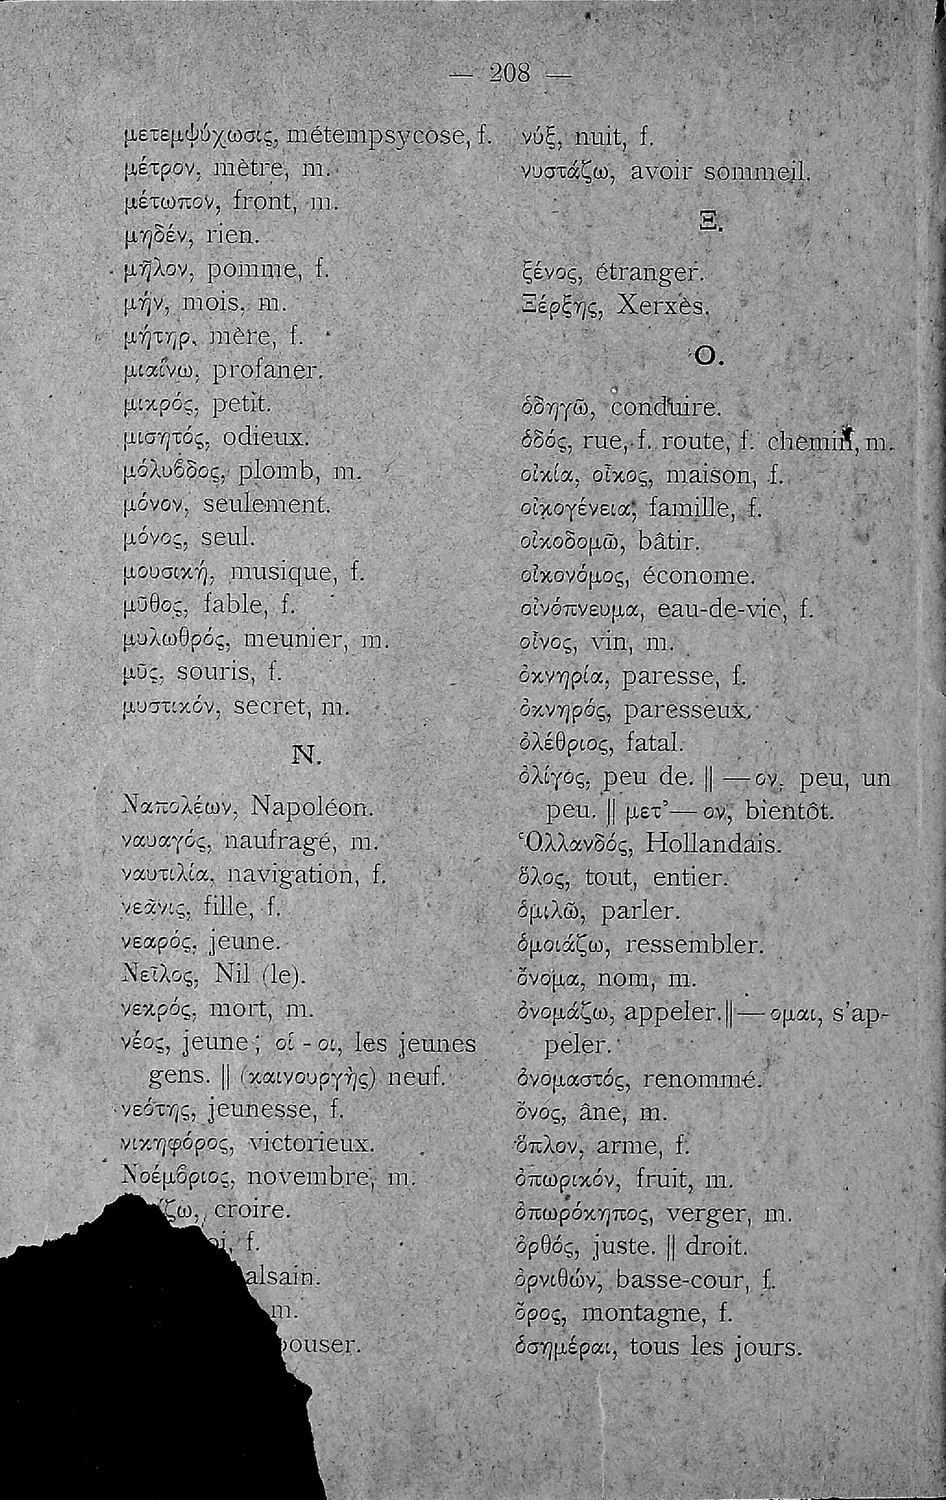 — 208 —
μετεμψύχωσις, métempsycose, f.
μέτρον, mètre, m.
μέτωπον, front, m.
μηδέν, rien.
μῆλον, pomme, f.
μήν, mois, m.
μήτηρ, mère, f.
μιαίνω, profaner.
μικρός, petit.
μισητός, odieux.
μόλυϐδος, plomb, m.
μόνον, seulement.
μόνος, seul.
μουσική, musique, f.
μῦθος, fable, f.
μυλωθρός, meunier, m.
μῦς, souris, f.
μυστικόν, secret, m.
Ν.
Ναπολέων, Napoléon.
ναυαγός, naufragé, m.
ναυτιλία, navigation, f.
νεᾶνις, fille, f.
νεαρός, jeune.
Νεῖλος, Nil (le).
νεκρός, mort, m.
νέος, jeune ; οἱ - οι, les jeunes
gens. || (καινουργὴς) neuf.
νεότης, jeunesse, f.
νικηφόρος, victorieux.
Νοέμϐριος, novembre, m.
ζω, croire.
oi, f.
alsain.
m.
ouser.
νύξ, nuit, f.
νυστάζω, avoir sommeil.
Ξ.
ξένος, étranger.
Ξέρξης, Xerxès.
Ο.
ὁδηγῶ, conduire.
ὁδός, rue, f. route, f. chemin, m.
οἰκία, οἶκος, maison, f.
οἰκογένεια, famille, f.
οἰκοδομῶ, bâtir.
οἰκονόμος, économe.
οἰνόπνευμα, eau-de-vie, f.
οἶνος, vin, m.
ὀκνηρία, paresse, f.
ὀκνηρός, paresseux.
ὀλέθριος, fatal.
ὀλίγος, peu de. || — ον, peu, un
peu. || μετ’ — ον, bientôt.
Ὁλλανδός, Hollandais.
ὅλος, tout, entier.
ὁμιλῶ, parler.
ὁμοιάζω, ressembler.
ὄνομα, nom, m.
ὀνομάζω, appeler. || — ομαι, s’ap-
peler.
ὀνομαστός, renommé.
ὄνος, âne, m.
ὅπλον, arme, f.
ὀπωρικόν, fruit, m.
ὀπωρόκηπος, verger, m.
ὀρθός, juste. || droit.
ὀρνιθών, basse-cour, f.
ὄρος, montagne, f.
ὁσημέραι, tous les jours.